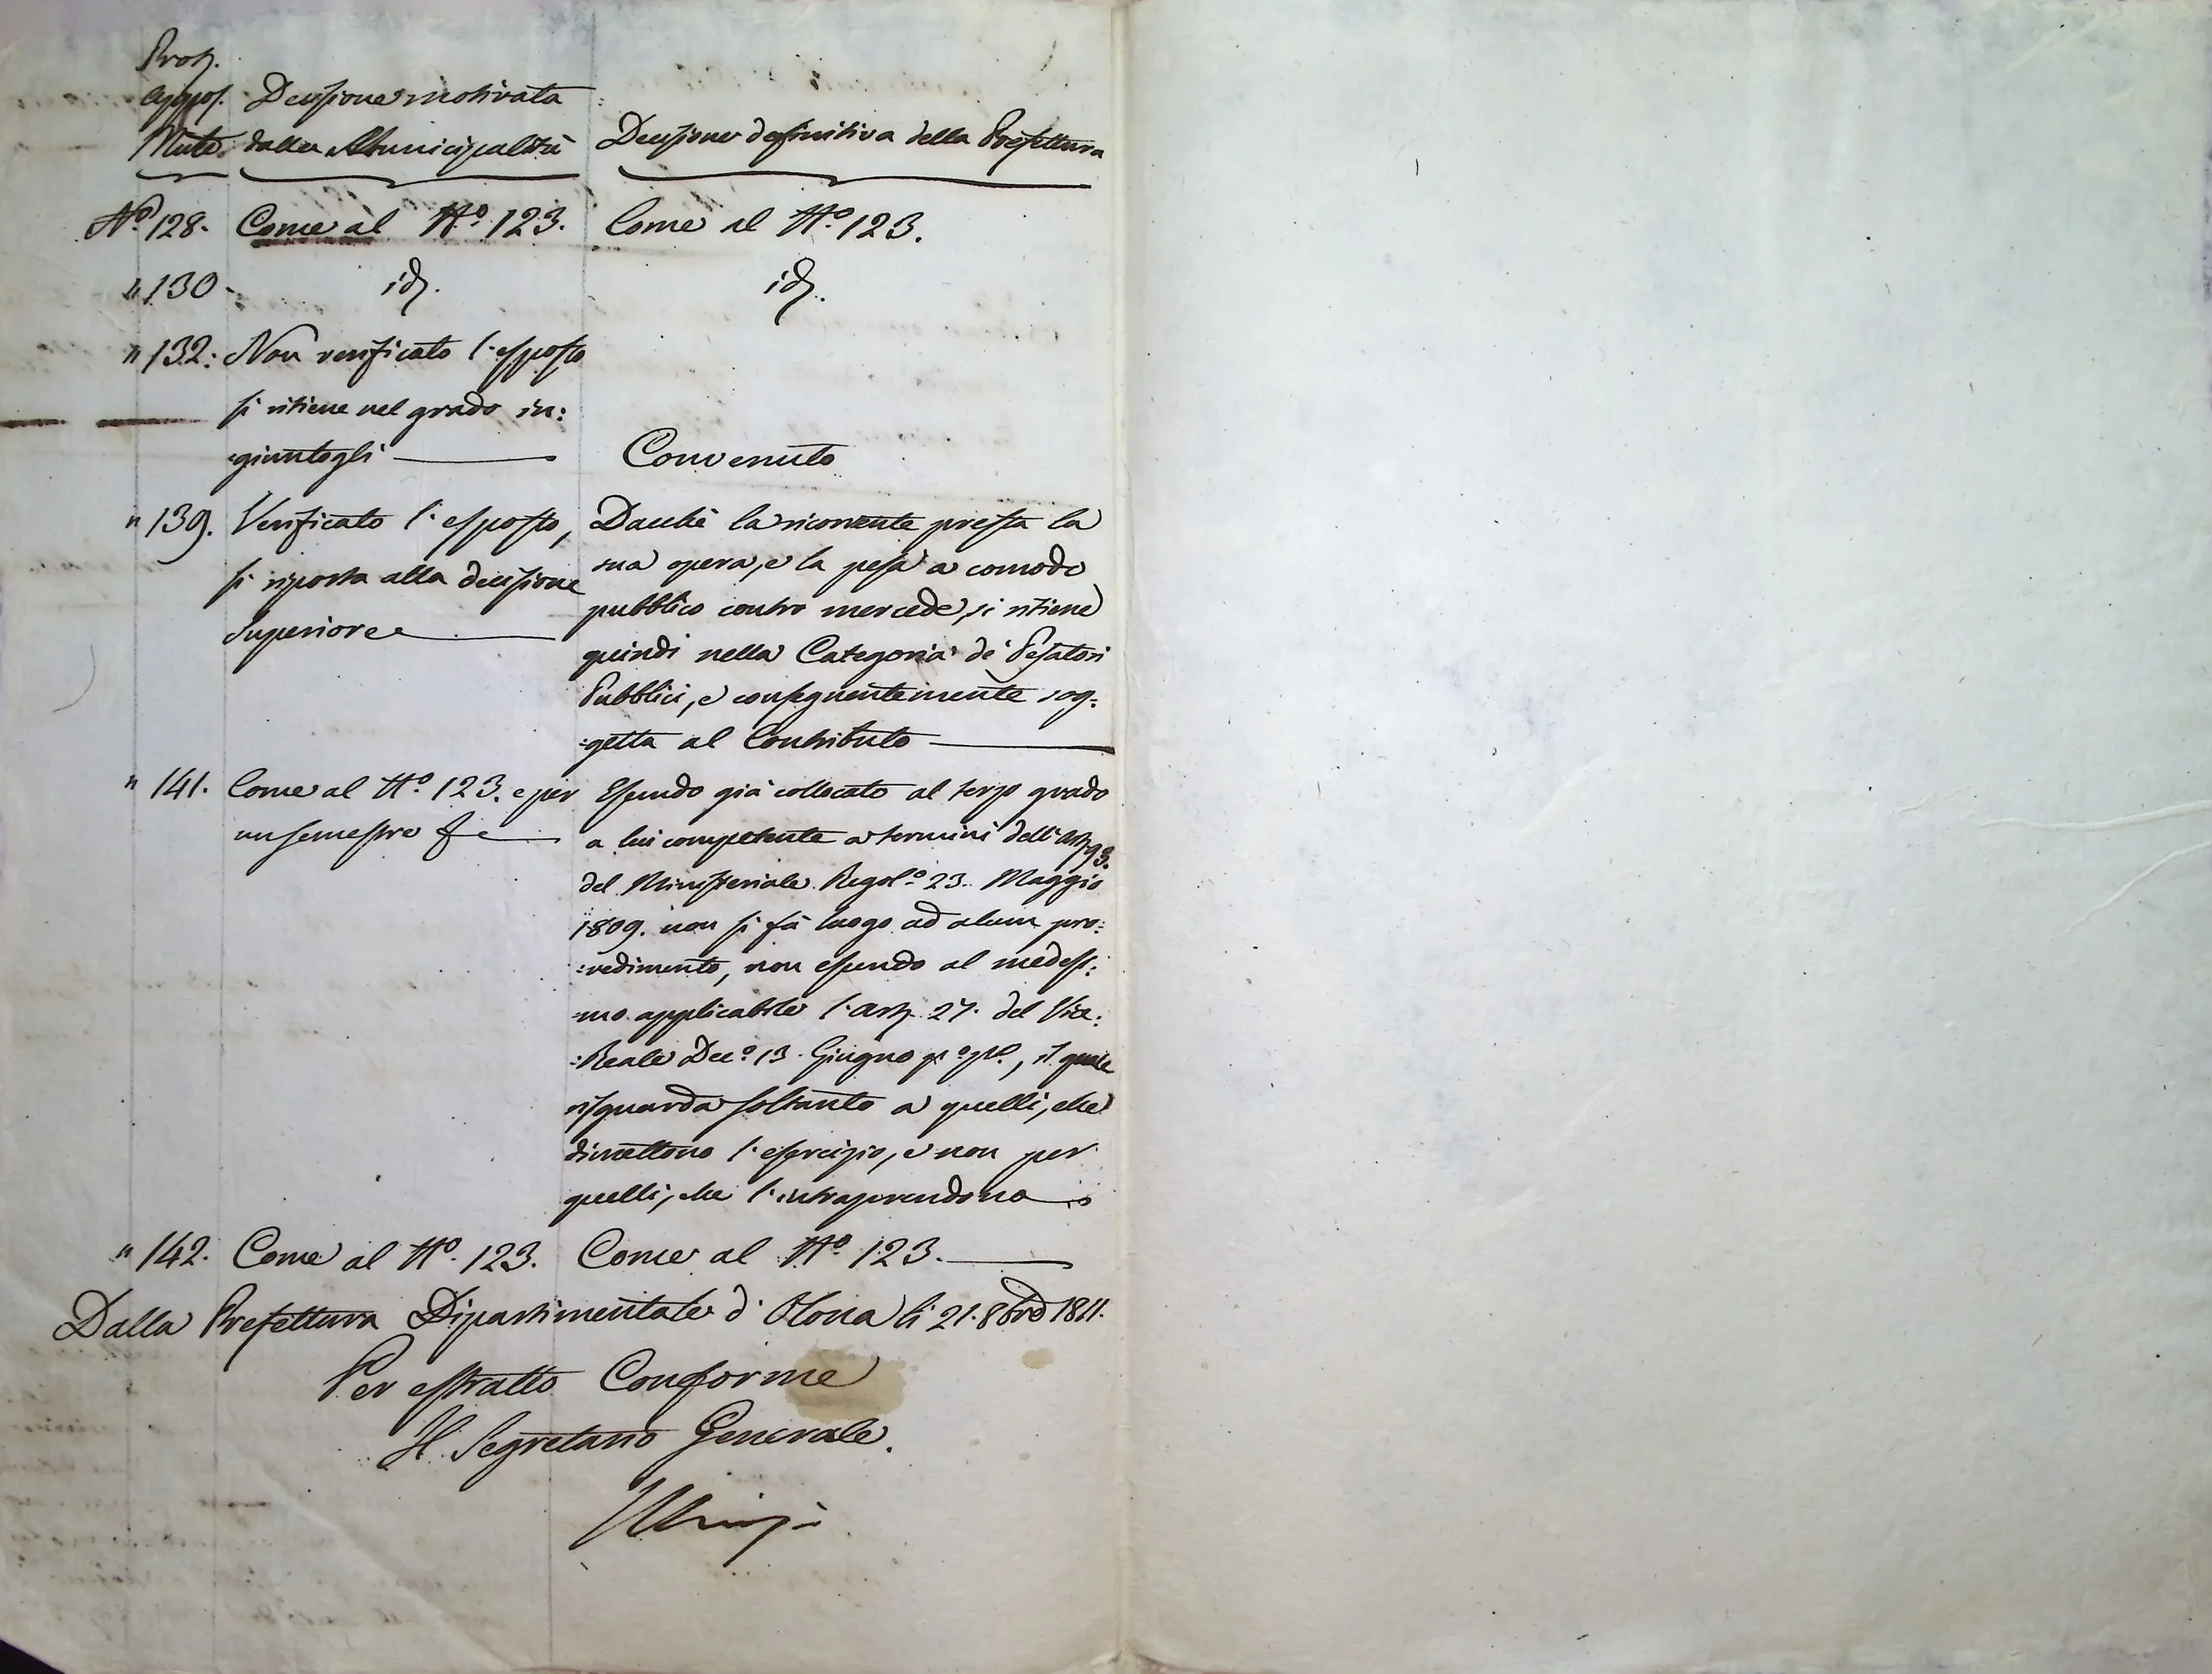 Prot.
Appos.
Decisione motivata
Mute. dalla Municipalità
Decisione definitiva della Prefettura
N.º 128. Come al N.º 123. Come al N.º 123.
" 130 - id. id.
" 132: Non verificato l'esposto
si ritiene nel grado in:
=giuntogli
Convenuto
" 139. Verificato l'esposto,
si riporta alla decisione
Superiore
Dacchè la ricorrente presta la
sua opera, e la pesa a comodo
pubblico contro mercede, si ritiene
quindi nella Categoria de' Pesatori
Pubblici, e conseguentemente sog:
=getta al Contributo
" 141. Come al N.º 123. e per
un semestre
Essendo già collocato al terzo grado
a lui competente a termini dell'art. 93.
del Ministeriale Regol.º 23. Maggio
1809. non si fà luogo ad alcun pro:
:vedimento, non essendo al medesi:
=mo applicabile l'art. 27. del Vice:
:Reale Dec.º 13. Giugno p.º p.º, il quale
risguarda soltanto a quelli, che
dimettono l'esercizio, e non per
quelli, che l'intraprendono
" 142. Come al N.º 123. Come al N.º 123.
Dalla Prefettura Dipartimentale d'Olona li 21. 8bre 1811.
Per estratto Conforme
Il Segretario Generale.